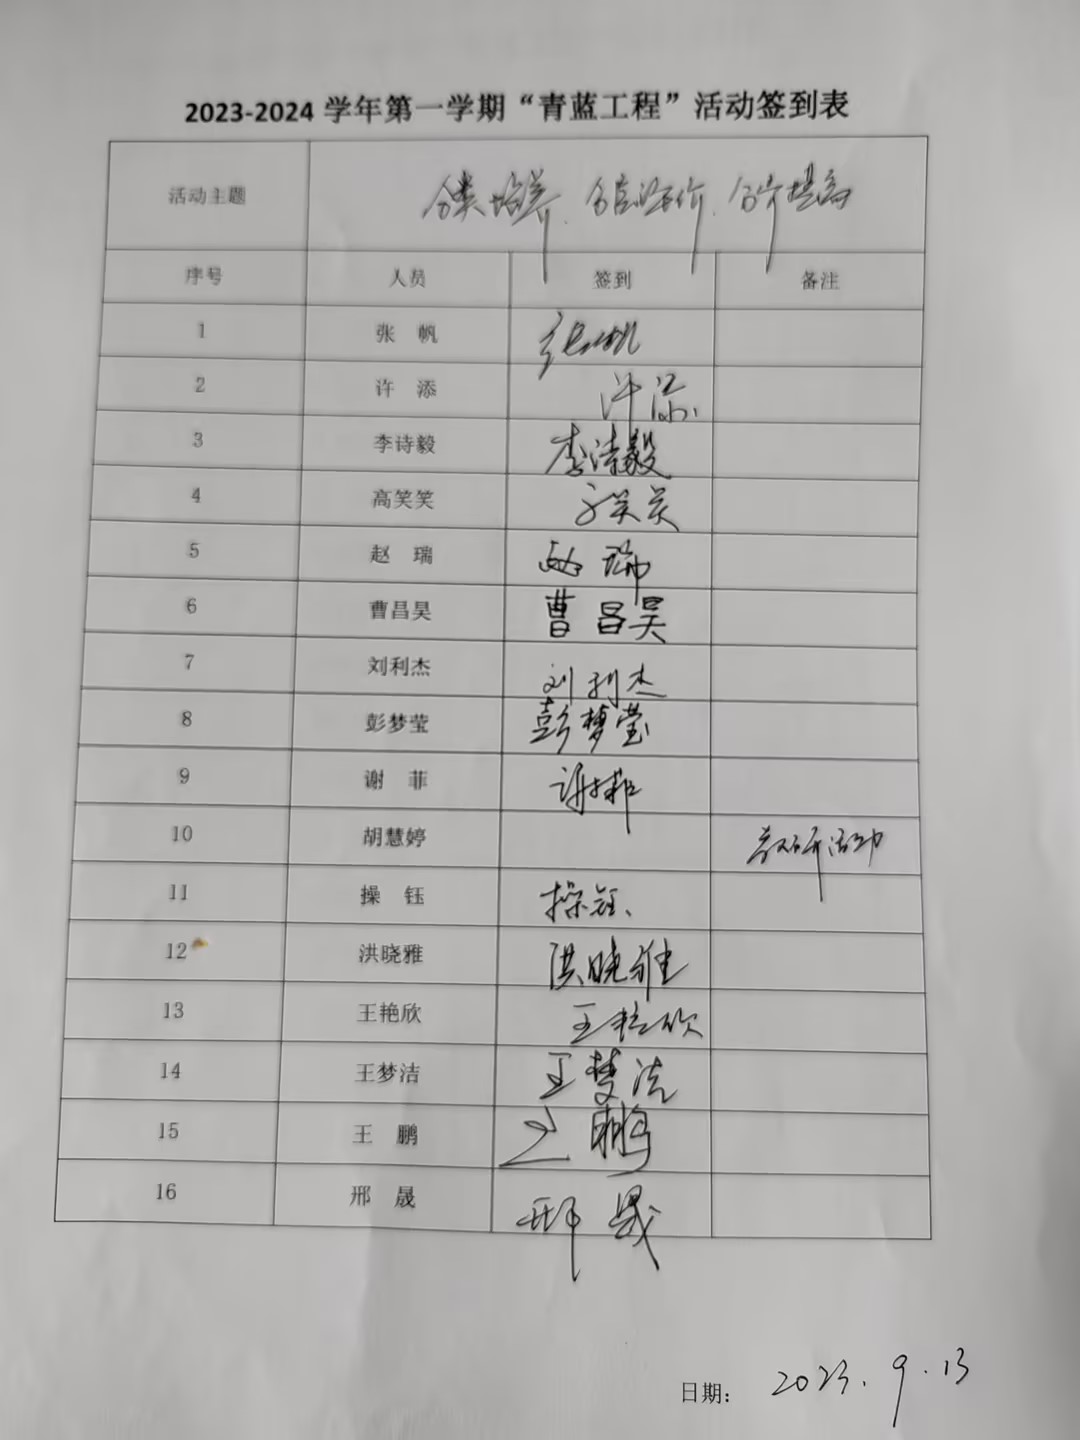 2023-2024 学年第一学期“青蓝工程”活动签到表
活动主题 分类培养、分层评价、分阶提高
序号 人员 签到 备注
1 张 帆 张帆
2 许 添 许添
3 李诗毅 李诗毅
4 高笑笑 高笑笑
5 赵 瑞 赵瑞
6 曹昌昊 曹昌昊
7 刘利杰 刘利杰
8 彭梦莹 彭梦莹
9 谢 菲 谢菲
10 胡慧婷 教研活动
11 操 钰 操钰
12 洪晓雅 洪晓雅
13 王艳欣 王艳欣
14 王梦洁 王梦洁
15 王 鹏 王鹏
16 邢 晟 邢晟
日期： 2023.9.13